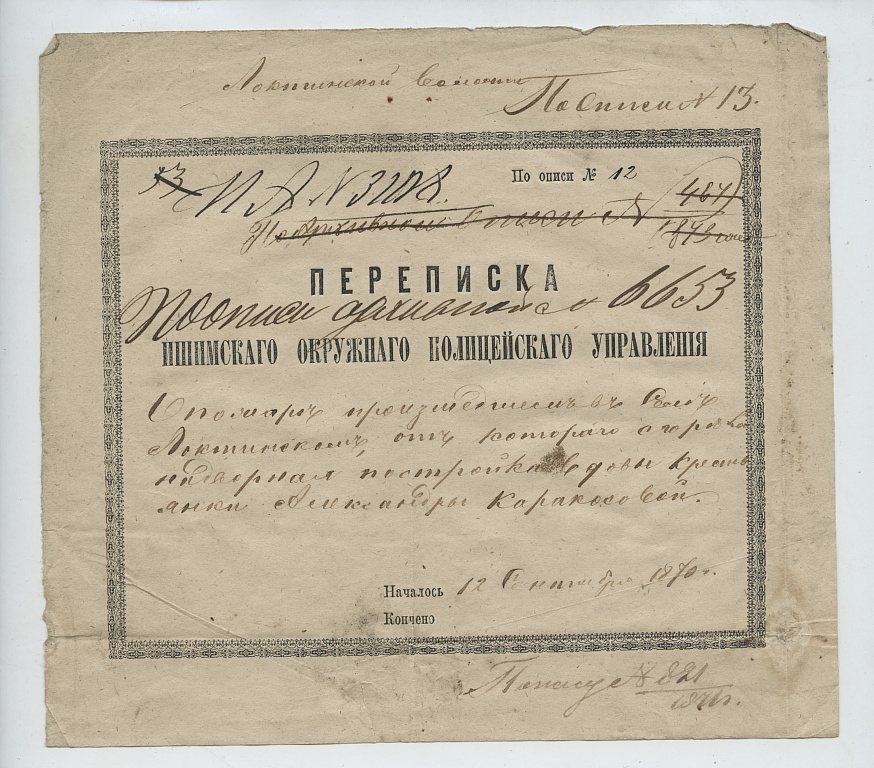 Локтинской волости
По описи № 13.
По описи № 12
53 И А № 3208.
По Архивной описи № 467
1873 года
ПЕРЕПИСКА
По описи архивной № 6653
ИШИМСКАГО ОКРУЖНАГО ПОЛИЦЕЙСКАГО УПРАВЛЕНІЯ
О пожаре произшедшемъ въ Селѣ
Локтинскомъ, отъ котораго сгорѣла
надворная постройка вдовы кресть
янки Александры
Началось 12 Сентября 1870 г.
Кончено
№ 821
1871 г.